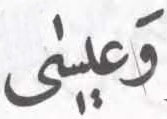 وَعِيسٰى